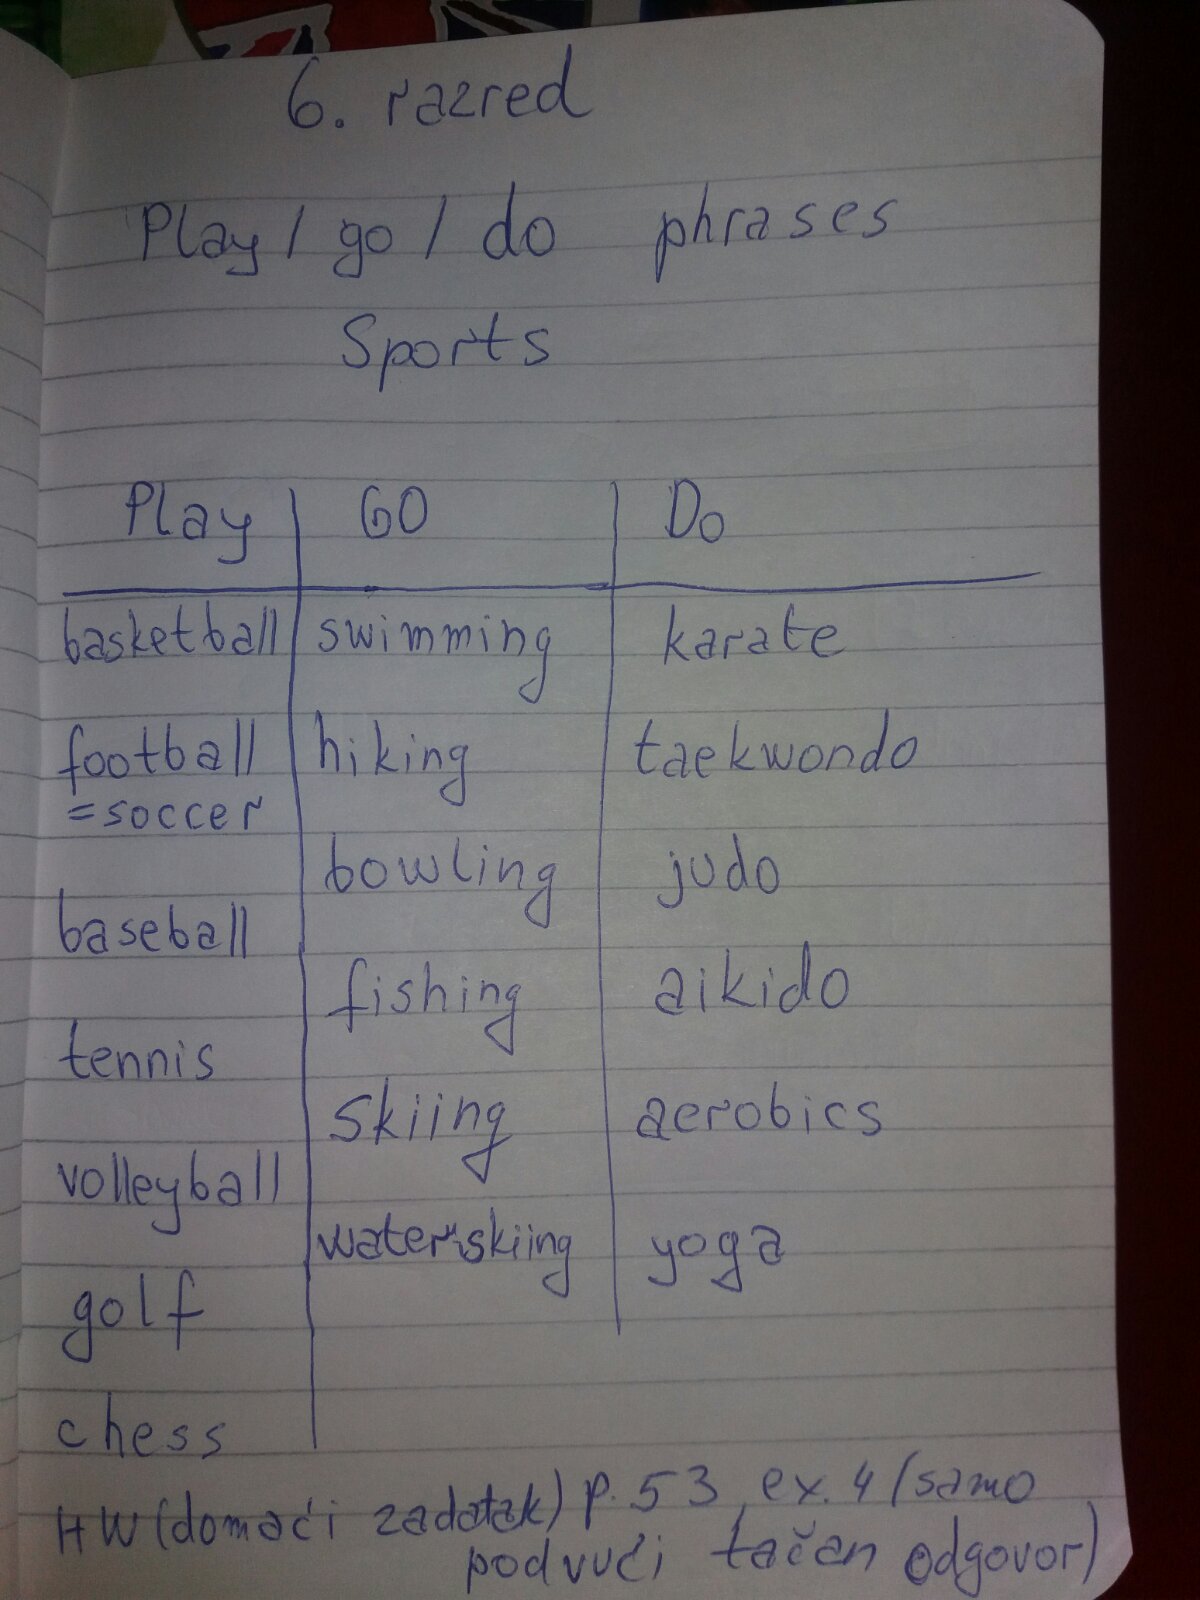 6. razred
Play / go / do phrases
Sports
Play GO Do
basketball swimming karate
football hiking taekwondo
=soccer
bowling judo
baseball
fishing aikido
tennis
skiing aerobics
volleyball
waterskiing yoga
golf
chess
HW (domaći zadatak) p. 53, ex. 4 (samo
podvući tačan odgovor)